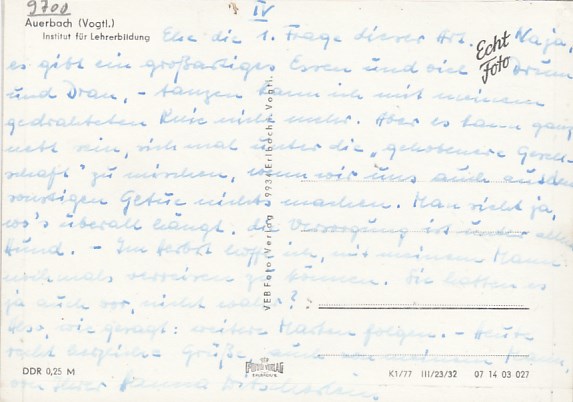 9700
IV
Auerbach (Vogtl.)
Institut für Lehrerbildung
Echt
Foto
Else die 1. Frage dieser Art. Naja,
es gibt ein großartiges Essen und viel Drum
und Dran, - tanzen kann ich mit meinem
Knie nicht mehr. Aber es kann ganz
nett sein, sich mal unter die "gehobenere Gesell-
schaft" zu mischen, wenn wir uns auch aus dem
sonstigen Getue nichts machen. Man sieht ja,
wo's überall hängt, die Versorgung ist unter aller
Hund. - Im Herbst hoffe ich, mit meinem Mann
nochmals verreisen zu können. Sie hatten es
ja auch vor, nicht wahr?
Also, wie gesagt: weitere Karten folgen. - Heute
recht herzliche Grüße, auch von meinem Mann,
von Ihrer
VEB Foto-Verlag 9934 Erlbach/Vogtl.
FOTO VERLAG
ERLBACH
DDR 0,25 M
K1/77 III/23/32 07 14 03 027